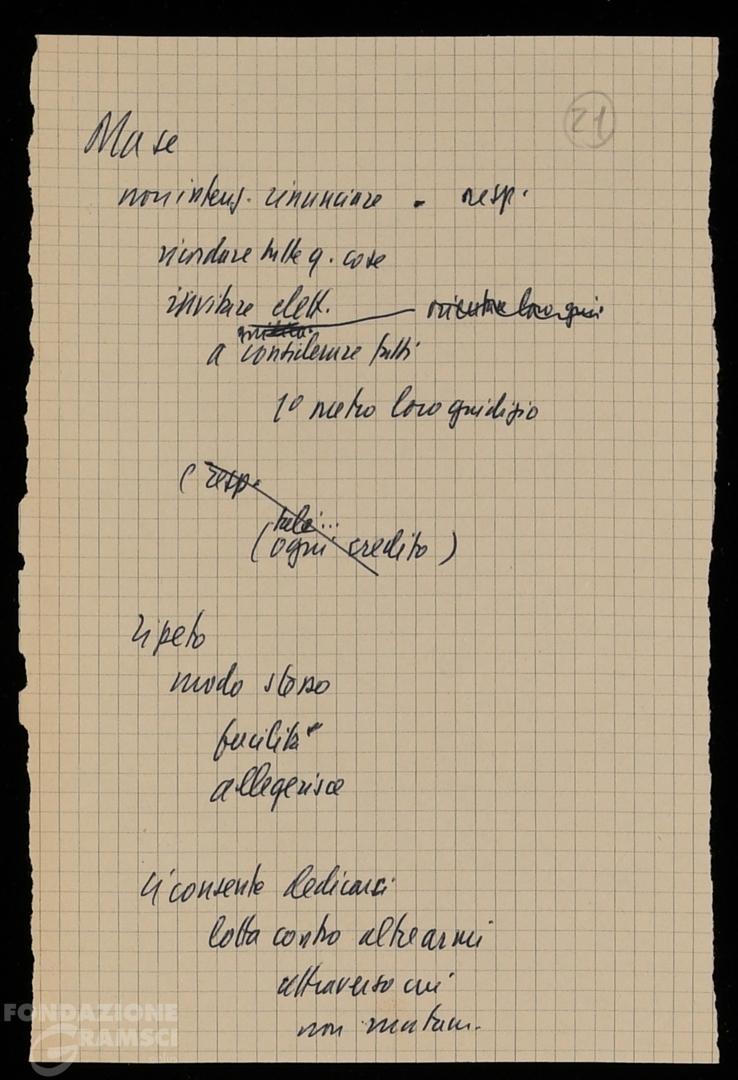 21
Ma se
non intens. rinunciare - resp.
ricordare tutte q. cose
invitare elett.
a considerare fatti
1º metro loro giudizio
(resp.
tale...
(ogni credito)
ripeto
modo stesso
facilita
allegerisce
ci consente dedicarci
lotta contro altre armi
attraverso cui
non mutam.
FONDAZIONE
GRAMSCI